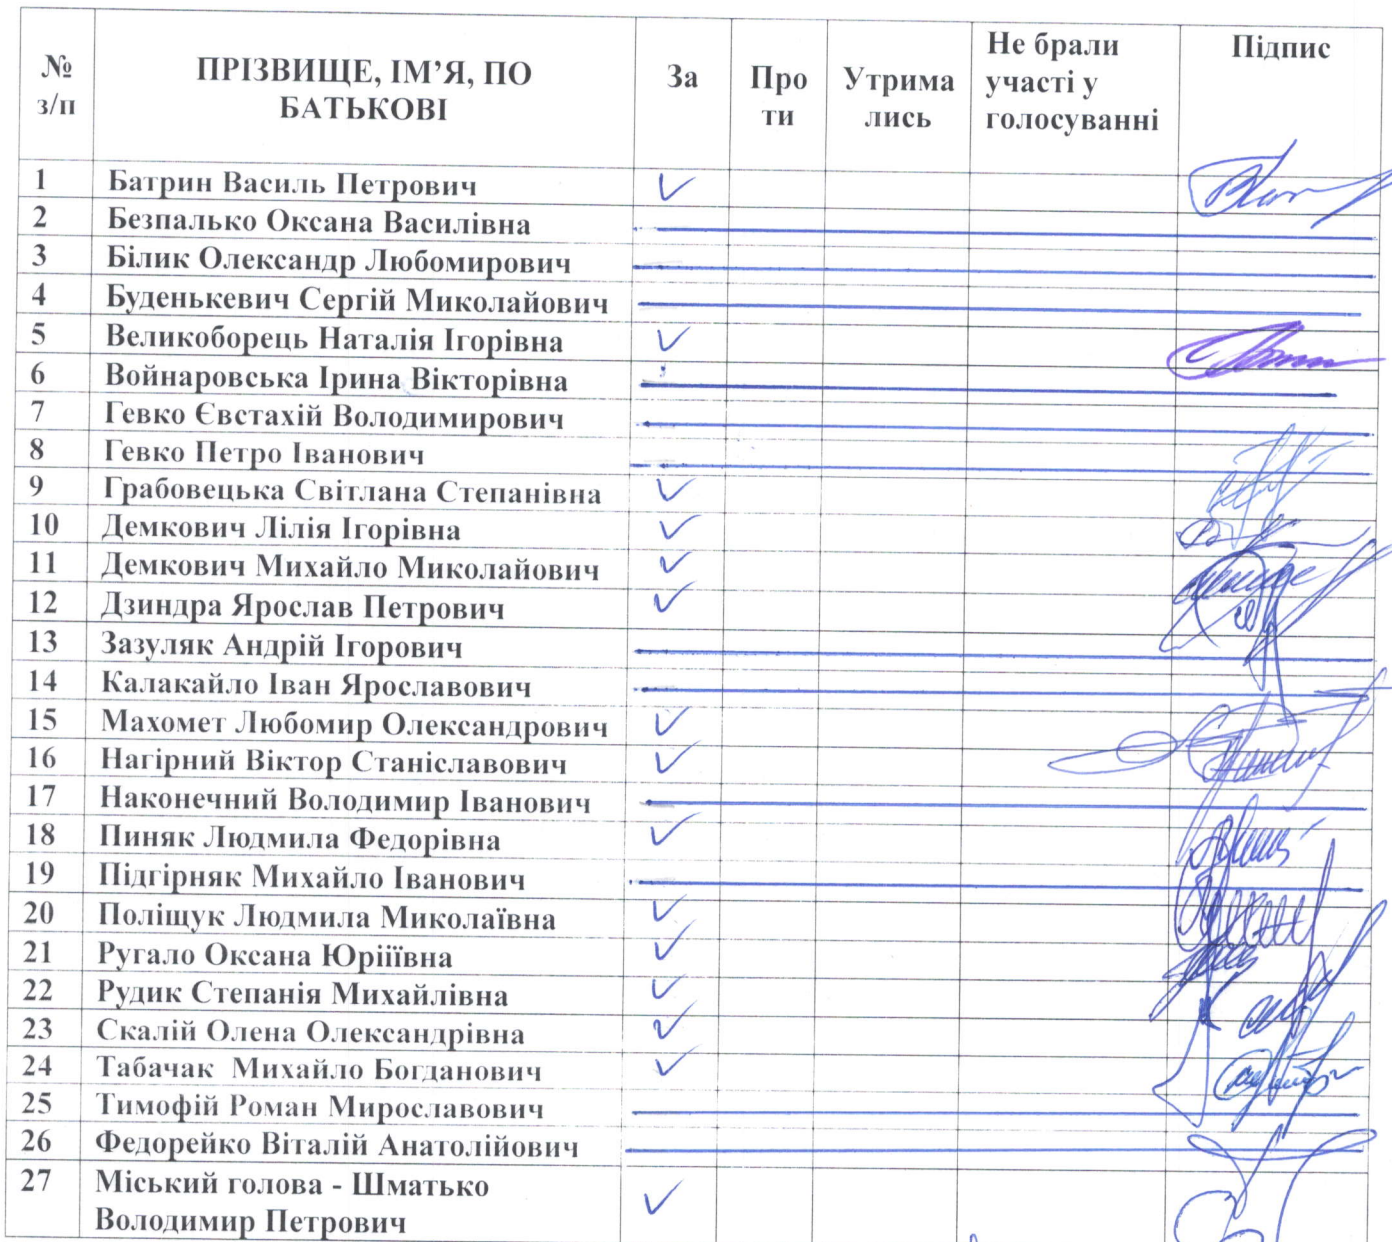 № з/п ПРІЗВИЩЕ, ІМ’Я, ПО БАТЬКОВІ За Про ти Утрима лись Не брали участі у голосуванні Підпис
1 Батрин Василь Петрович ✓
2 Безпалько Оксана Василівна
3 Білик Олександр Любомирович
4 Буденькевич Сергій Миколайович
5 Великоборець Наталія Ігорівна ✓
6 Войнаровська Ірина Вікторівна
7 Гевко Євстахій Володимирович
8 Гевко Петро Іванович
9 Грабовецька Світлана Степанівна ✓
10 Демкович Лілія Ігорівна ✓
11 Демкович Михайло Миколайович ✓
12 Дзиндра Ярослав Петрович ✓
13 Зазуляк Андрій Ігорович
14 Калакайло Іван Ярославович
15 Махомет Любомир Олександрович ✓
16 Нагірний Віктор Станіславович ✓
17 Наконечний Володимир Іванович
18 Пиняк Людмила Федорівна ✓
19 Підгірняк Михайло Іванович
20 Поліщук Людмила Миколаївна ✓
21 Ругало Оксана Юріїївна ✓
22 Рудик Степанія Михайлівна ✓
23 Скалій Олена Олександрівна ✓
24 Табачак Михайло Богданович ✓
25 Тимофій Роман Мирославович
26 Федорейко Віталій Анатолійович
27 Міський голова - Шматько
Володимир Петрович ✓